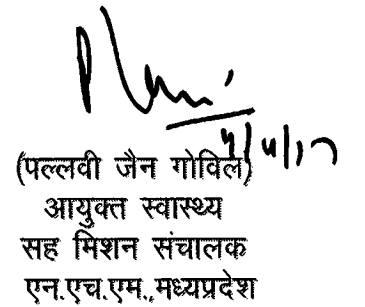 (पल्लवी जैन गोविल)
आयुक्त स्वास्थ्य
सह मिशन संचालक
एन.एच.एम., मध्यप्रदेश